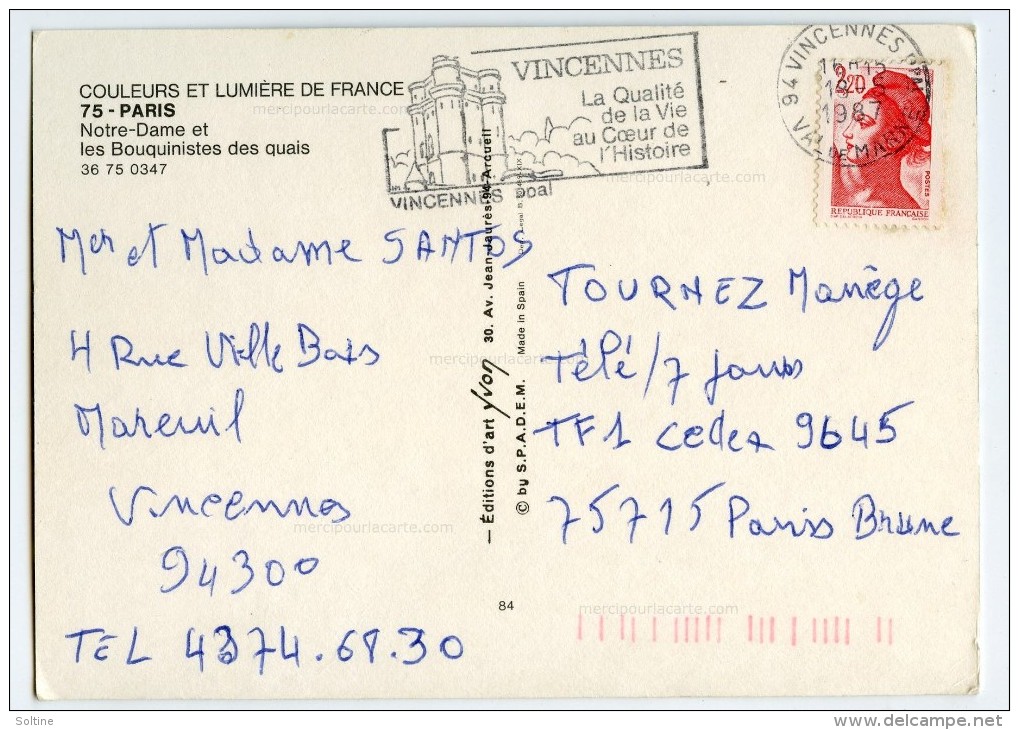 COULEURS ET LUMIÈRE DE FRANCE
75 - PARIS
Notre-Dame et
les Bouquinistes des quais
36 75 0347
VINCENNES
La Qualité
de la Vie
au Cœur de
l'Histoire
VINCENNES Ppal
94 VINCENNES
1987
VAL DE MARNE
2,20
POSTES
REPUBLIQUE FRANÇAISE
Mer et Madame SANTOS
4 Rue Ville Bois
Mareuil
Vincennes
94300
TEL 4374.68.30
— Éditions d'art Yvon 30. Av. Jean-Jaurès-94-Arcueil
© by S.P.A.D.E.M. Made in Spain
TOURNEZ Manège
Télé/7 jours
TF1 cedex 9645
75715 Pariss Brune
84
mercipourlacarte.com
mercipourlacarte.com
mercipourlacarte.com
mercipourlacarte.com
mercipourlacarte.com
Soltine
www.delcampe.net